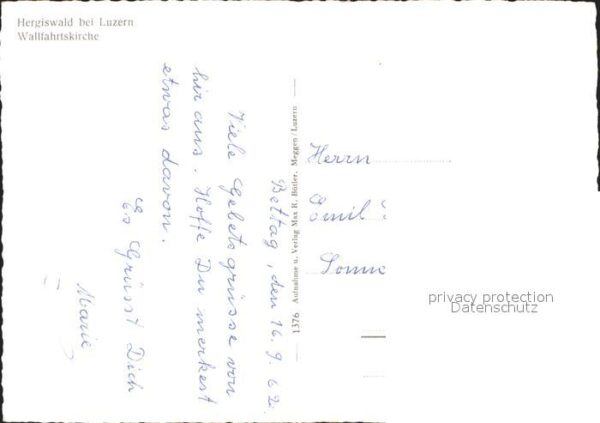 Hergiswald bei Luzern
Wallfahrtskirche
Bettag, den 16. 9. 62.
Viele Gebetsgrüsse von
hir aus. Hoffe Du merkest
etwas davon.
Es Grüsst Dich
Marie
1376 Aufnahme u. Verlag Max R. Bütler, Meggen/Luzern
Herrn
Emil
privacy protection
Datenschutz